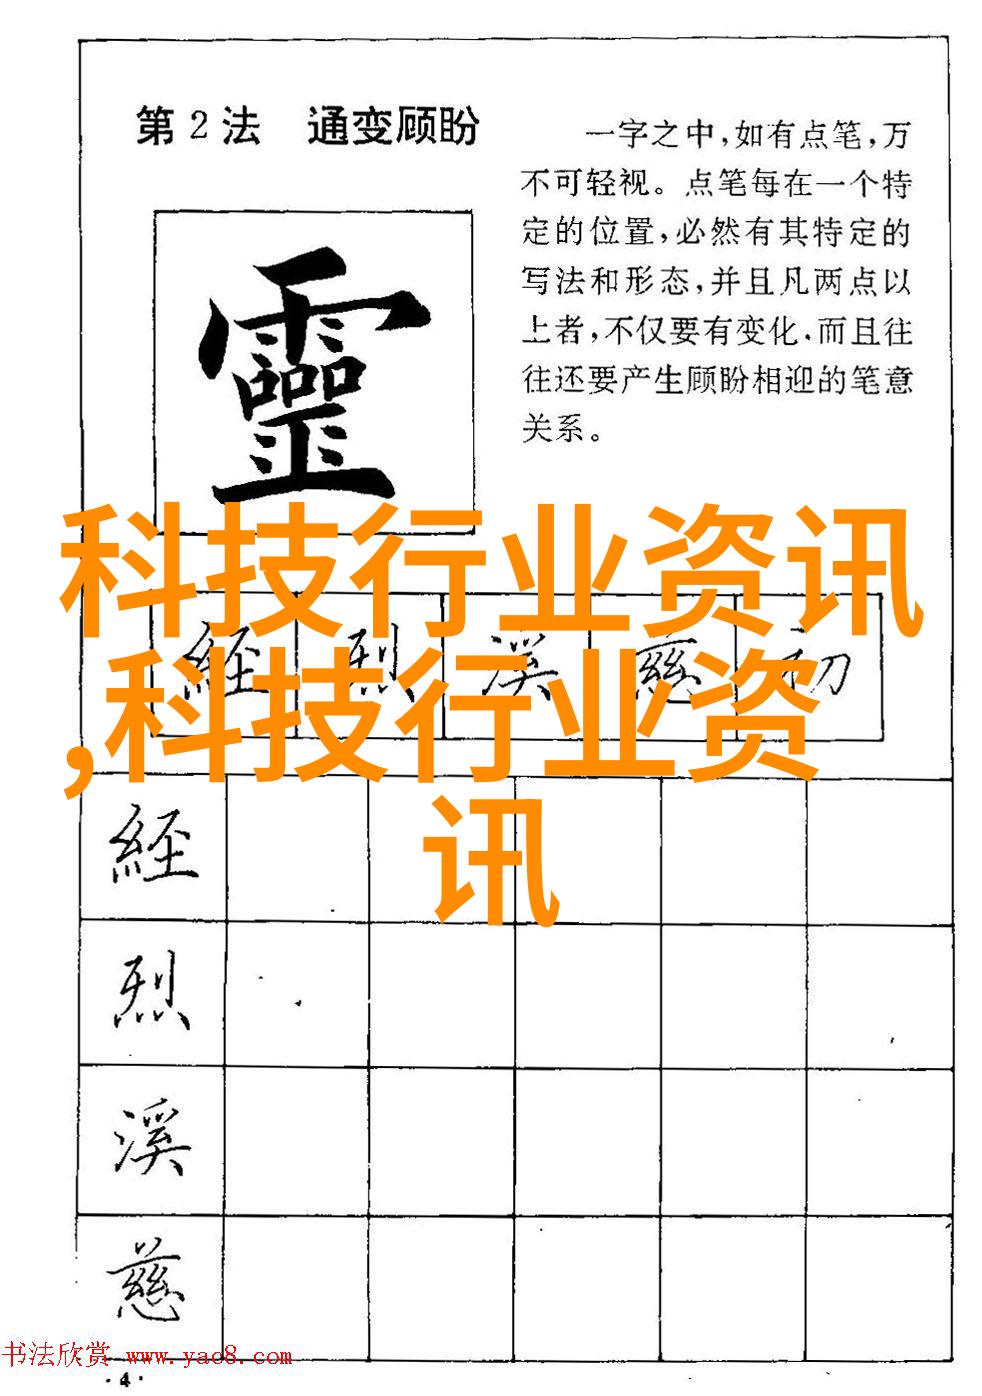 第2法 通变顾盼
一字之中,如有点笔,万
不可轻视。点笔每在一个特
定的位置,必然有其特定的
写法和形态,并且凡两点以
上者,不仅要有变化.而且往
往还要产生顾盼相迎的笔意
关系。
靈
科技行业资讯
,科技行业资
讯
經 烈 溪 慈 初
經
烈
溪
慈
书法欣赏 www.yac8.com
·4·